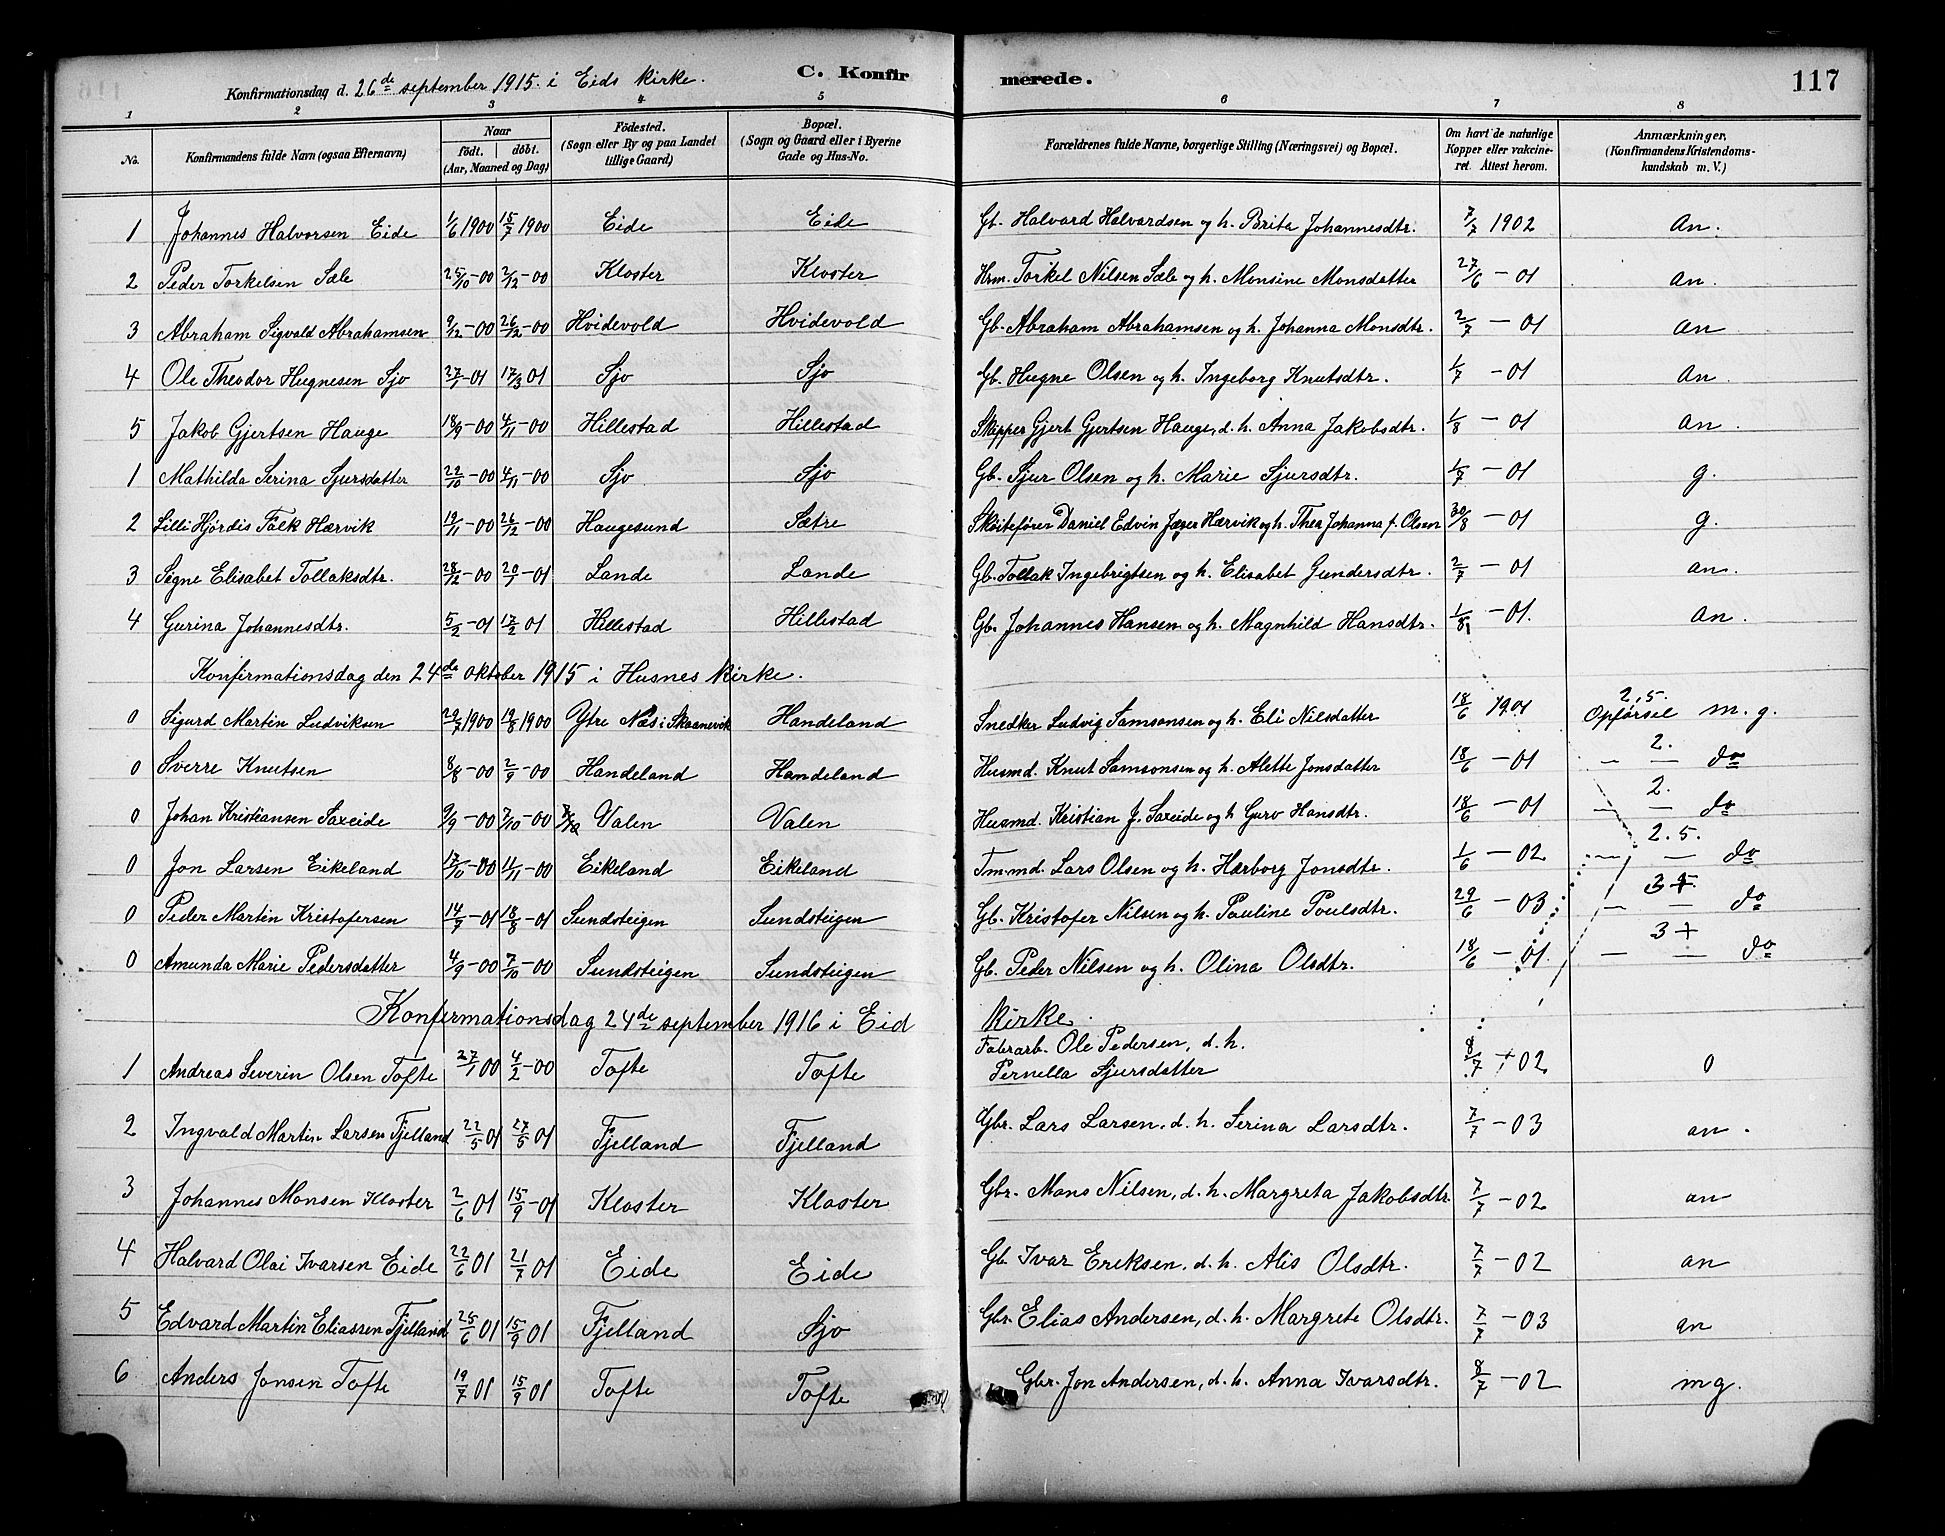 C. Konfirmerede. 117
Konfirmationsdag d. 26de september 1915. i Eids kirke.
1 2 3 4 5 6 7 8
No. Konfirmandens fulde Navn (ogsaa Efternavn) Naar født. døbt. (Aar, Maaned og Dag) Fødested. (Sogn eller By og paa Landet tillige Gaard) Bopæl. (Sogn og Gaard eller i Byerne Gade og Hus-No. Forældrenes fulde Navne, borgerlige Stilling (Næringsvei) og Bopæl. Om havt de naturlige Kopper eller vakcineret. Attest herom. Anmærkninger. (Konfirmandens Kristendomskundskab m. V.)
1 Johannes Halvorsen Eide 1/6 1900 15/7 1900 Eide Eide Gb. Halvard Halvardsen og h. Brita Johannesdtr. 7/7 1902 an.
2 Peder Torkelsen Sæle 25/10-00 2/12-00 Kloster Kloster Hrm. Torkel Nilsen Sæle og h. Monsine Monsdatter 27/6-01 an.
3 Abraham Sigvald Abrahamsen 9/12-00 26/12-00 Hvidevold Hvidevold Gb. Abraham Abrahamsen og h. Johanna Monsdtr. 2/7-01 an
4 Ole Theodor Hugnesen Sjo 27/1-01 17/3 01 Sjo Sjo Gb. Hugne Olsen og h. Ingeborg Knutsdtr. 1/7-01 an
5 Jakob Gjertsen Hauge 18/9-00 4/11-00 Hillestad Hillestad Skipper Gjert Gjertsen Hauge, d. h. Anna Jakobsdtr. 1/8-01 an.
1 Mathilda Serina Sjursdatter 22/10-00 4/11-00 Sjo Sjo Gb. Sjur Olsen og h. Marie Sjursdtr. 1/7-01 g.
2 Lilli Hjørdis Falk Hærvik 19/11-00 26/12-00 Haugesund Sætre Skøitefører Daniel Edvin Jæger Hærvik og h. Thea Johanna f. Olsen 30/8-01 g.
3 Signe Elisabet Tollaksdtr. 28/12-00 20/1-01 Lande Lande Gb. Tollak Ingebrigtsen og h. Elisabet Gundersdtr. 2/7-01 an.
4 Gurina Johannesdtr. 5/2-01 17/2 01 Hillestad Hillestad Gb. Johannes Hansen og h. Magnhild Hansdtr. 1/8-01. an.
Konfirmationsdag den 24de oktober 1915 i Husnes kirke.
0 Sigurd Martin Ludviksen 29/7 1900 19/8 1900 Ytre Næs i Skaanevik Handeland Snedker Ludvig Samsonsen og h. Eli Nilsdatter 18/6 1901 2,5. Opførsel m. g.
0 Sverre Knutsen 8/8-00 2/9-00 Handeland Handeland Husmd. Knut Samsonsen og h. Alette Jonsdatter 18/6-01 2. — — do
0 Johan Kristiansen Saxeide 9/9-00 7/10-00 Valen Valen Husmd. Kristian J. Saxeide og h Guro Hansdtr. 18/6-01 2. — — do
0 Jon Larsen Eikeland 17/10-00 11/11-00 Eikeland Eikeland Tm.md. Lars Olsen og h. Hærborg Jonsdtr. 1/6-02 2.5. — — do
0 Peder Martin Kristofersen 14/7-01 18/8-01 Sundsteigen Sundsteigen Gb. Kristofer Nilsen og h. Pauline Poulsdtr. 29/6-03 — — do
0 Amunda Marie Pedersdatter 4/9-00 7/10-00 Sundsteigen Sundsteigen Gb. Peder Nilsen og h. Olina Olsdtr. 18/6-01. 3+ — — do
Konfirmationsdag 24de september 1916 i Eid kirke.
1 Andreas Severin Olsen Tofte 27/1 00 4/2-00 Tofte Tofte Fabrarb. Ole Pedersen, d. h. Pernella Sjursdatter 8/7 02 0
2 Ingvald Martin Larsen Fjelland 22/5 01 27/5 01 Fjelland Fjelland Gbr. Lars Larsen, d. h. Serina Larsdtr. 7/7-03 an.
3 Johannes Monsen Kloster 2/6 01 15/9-01 Kloster Kloster Gbr. Mons Nilsen, d. h. Margreta Jakobsdtr. 7/7-02 an
4 Halvard Olai Ivarsen Eide 22/6 01 21/7 01 Eide Eide Gb. Ivar Eriksen, d. h. Alis Olsdtr. 7/7-02 an
5 Edvard Martin Eliassen Fjelland 25/6 01 15/9 01 Fjelland Sjo Gbr. Elias Andersen, d. h. Margrete Olsdtr. 7/7-03 an
6 Anders Jonsen Tofte 19/7 01 15/9 01 Tofte Tofte Gbr. Jon Andersen, d. h. Anna Ivarsdtr. 8/7-02 mg.